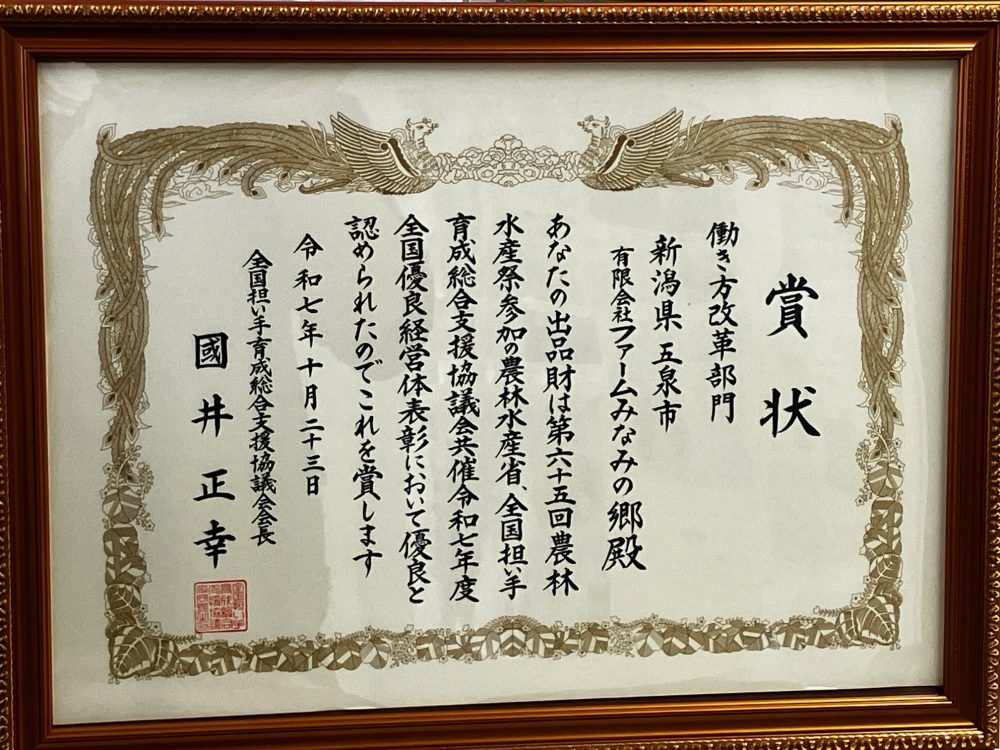 賞状
働き方改革部門
新潟県 五泉市
有限会社ファームみなみの郷殿
あなたの出品財は第六十五回農林
水産祭参加の農林水産省、全国担い手
育成総合支援協議会共催令和七年度
全国優良経営体表彰において優良と
認められたのでこれを賞します
令和七年十月二十三日
全国担い手育成総合支援協議会会長
國井正幸